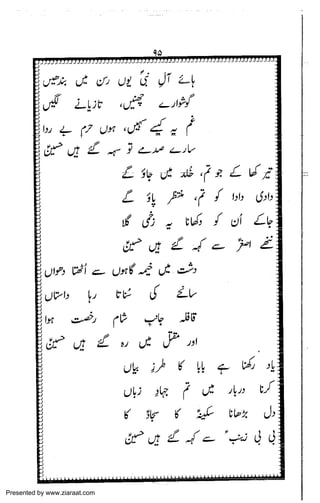 ۹۵
ہائے آلِ نبیؐ یوں رسن میں بندھیں
گوشوارے چھنیں، تازیانے لگیں
غم یہ کیسے سہیں، ہوں حرم بے ردا
سارے صدمے تو سہہ گئے ہیں حسینؑ
تیر کھا کے جو تم، خُلد میں جاؤ گے
دادی دادا کو تم، منتظر پاؤ گے
جاکے اُن کو دکھانا یہ زخمی گلا
ننھے اصغرؑ سے کہہ گئے ہیں حسینؑ
دشت میں خیمہ گاہوں سے اُٹھتا دھواں
سانحے کی سُناتا رہا داستاں
قافلہ جانبِ شام رخصت ہوا
اور مقتل میں رہ گئے ہیں حسینؑ
یاد رکھنا ہے بابا کا طرزِ بیاں
کرنا دربار میں تم جہادِ زباں
دل بڑھانا سکینہؑ کا سجادؑ کا
بی بی زینبؑ سے کہہ گئے ہیں حسینؑ
Presented by www.ziaraat.com